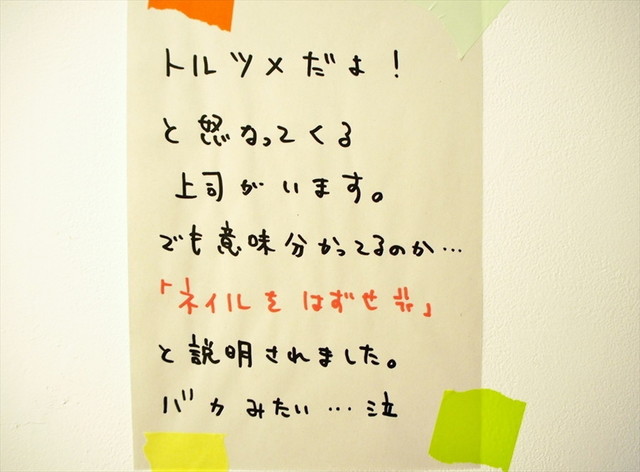 トルツメだよ！
と怒ってくる
上司がいます。
でも意味分かってるのか…
「ネイルをはずせ💢」
と説明されました。
バカみたい…泣